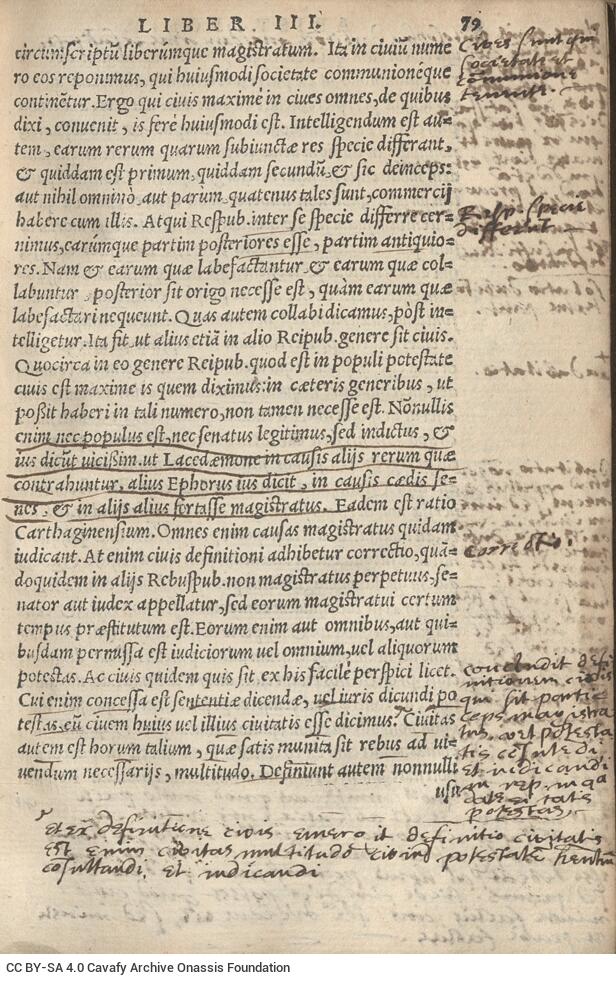 LIBER III. 79
circumscriptũ liberúmque magistratum. Ita in civiũ nume
ro eos reponimus, qui huiusmodi societate communionéque
continẽtur. Ergo qui civis maximè in cives omnes, de quibus
dixi, convenit, is ferè huiusmodi est. Intelligendum est au-
tem, earum rerum quarum subiunctæ res specie differant,
& quiddam est primum, quiddam secundũ, & sic deinceps:
aut nihil omnino, aut parum, quatenus tales sunt, commercij
habere cum illis. Atqui Respub. inter se specie differre cer-
nimus, earúmque partim posteriores esse, partim antiquio-
res. Nam & earum quæ labefactantur, & earum quæ col-
labuntur, posterior sit origo necesse est, quàm earum quæ
labefactari nequeunt. Quas autem collabi dicamus, pòst in-
telligetur. Ita fit, ut alius etiã in alio Reipub. genere sit civis.
Quocirca in eo genere Reipub. quod est in populi potestate
civis est maxime is quem diximus: in cæteris generibus, ut
poßit haberi in tali numero, non tamen necesse est. Nõnullis
enim nec populus est, nec senatus legitimus, sed indictus, &
ius dicũt vicißim. ut Lacedæmone in causis alijs rerum quæ
contrahuntur, alius Ephorus ius dicit, in causis cædis se-
nes, & in alijs alius fortasse magistratus. Eadem est ratio
Carthaginensium. Omnes enim causas magistratus quidam
iudicant. At enim civis definitioni adhibetur correctio, quã-
doquidem in alijs Rebuspub. non magistratus perpetuus, se-
nator aut iudex appellatur, sed eorum magistratui certum
tempus præstitutum est. Eorum enim aut omnibus, aut qui-
busdam permissa est iudiciorum vel omnium, vel aliquorum
potestas. Ac civis quidem quis sit ex his facilè perspici licet.
Cui enim concessa est sententiæ dicendæ, vel iuris dicundi po
testas, eũ civem huius vel illius civitatis esse dicimus. Civitas
autem est horum talium, quæ satis munita sit rebus ad ut-
vendum necessarijs, multitudo. Definiunt autem nonnulli
usu
Cives sunt qui
societate et
communione
tenentur.
Resp. specie
differunt
correctio.
concludit defi
nitionem civis
qui sit parti
ceps magistra
tus, vel potesta
tis consulendi
et iudicandi
potestas
et ex definitione civis emergit definitio civitatis
est enim civitas multitudo civium potestatẽ hentiũ
cõsultandi et iudicandi
CC BY-SA 4.0 Cavafy Archive Onassis Foundation